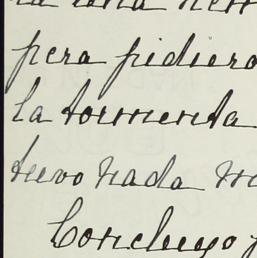 pera pidiero
la tormenta
tuvo nada m
Concluyo